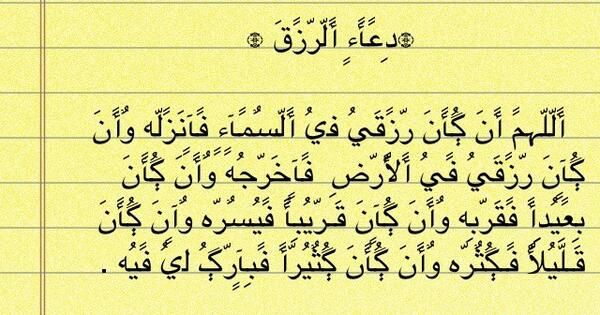 ۞ دعاء الرزق ۞
اللهم أن كان رزقي في السماء فأنزله وأن
كان رزقي في الأرض فأخرجه وأن كان
بعيدا فقربه وأن كان قريبا فيسره وأن كان
قليلا فكثره وأن كان كثيرا فبارك لي فيه .